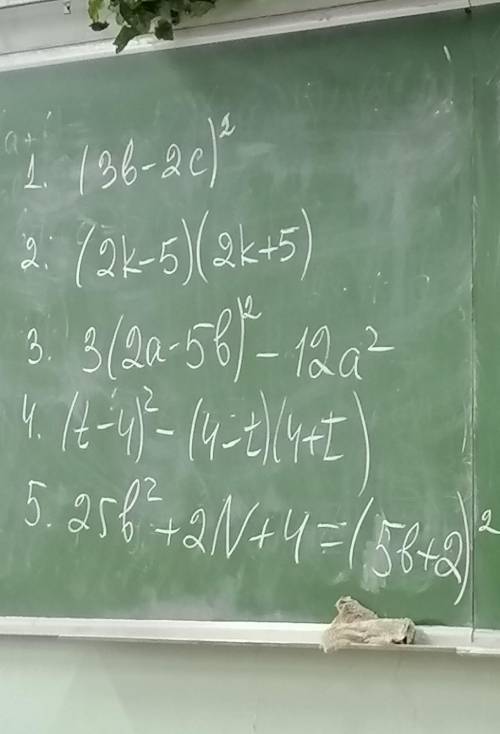 1. (3b-2c)²
2. (2k-5)(2k+5)
3. 3(2a-5b)² - 12a²
4. (t-4)² - (4-t)(4+t)
5. 25b² + 2N + 4 = (5b+2)²